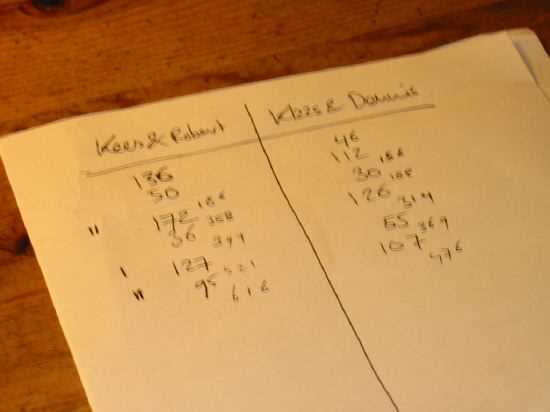 Kees & Robert
136
50
" 172 186
36 358
394
' 127
95 521
616
Klaas & Dennis
46
112
30 158
126 188
314
55
107 369
476